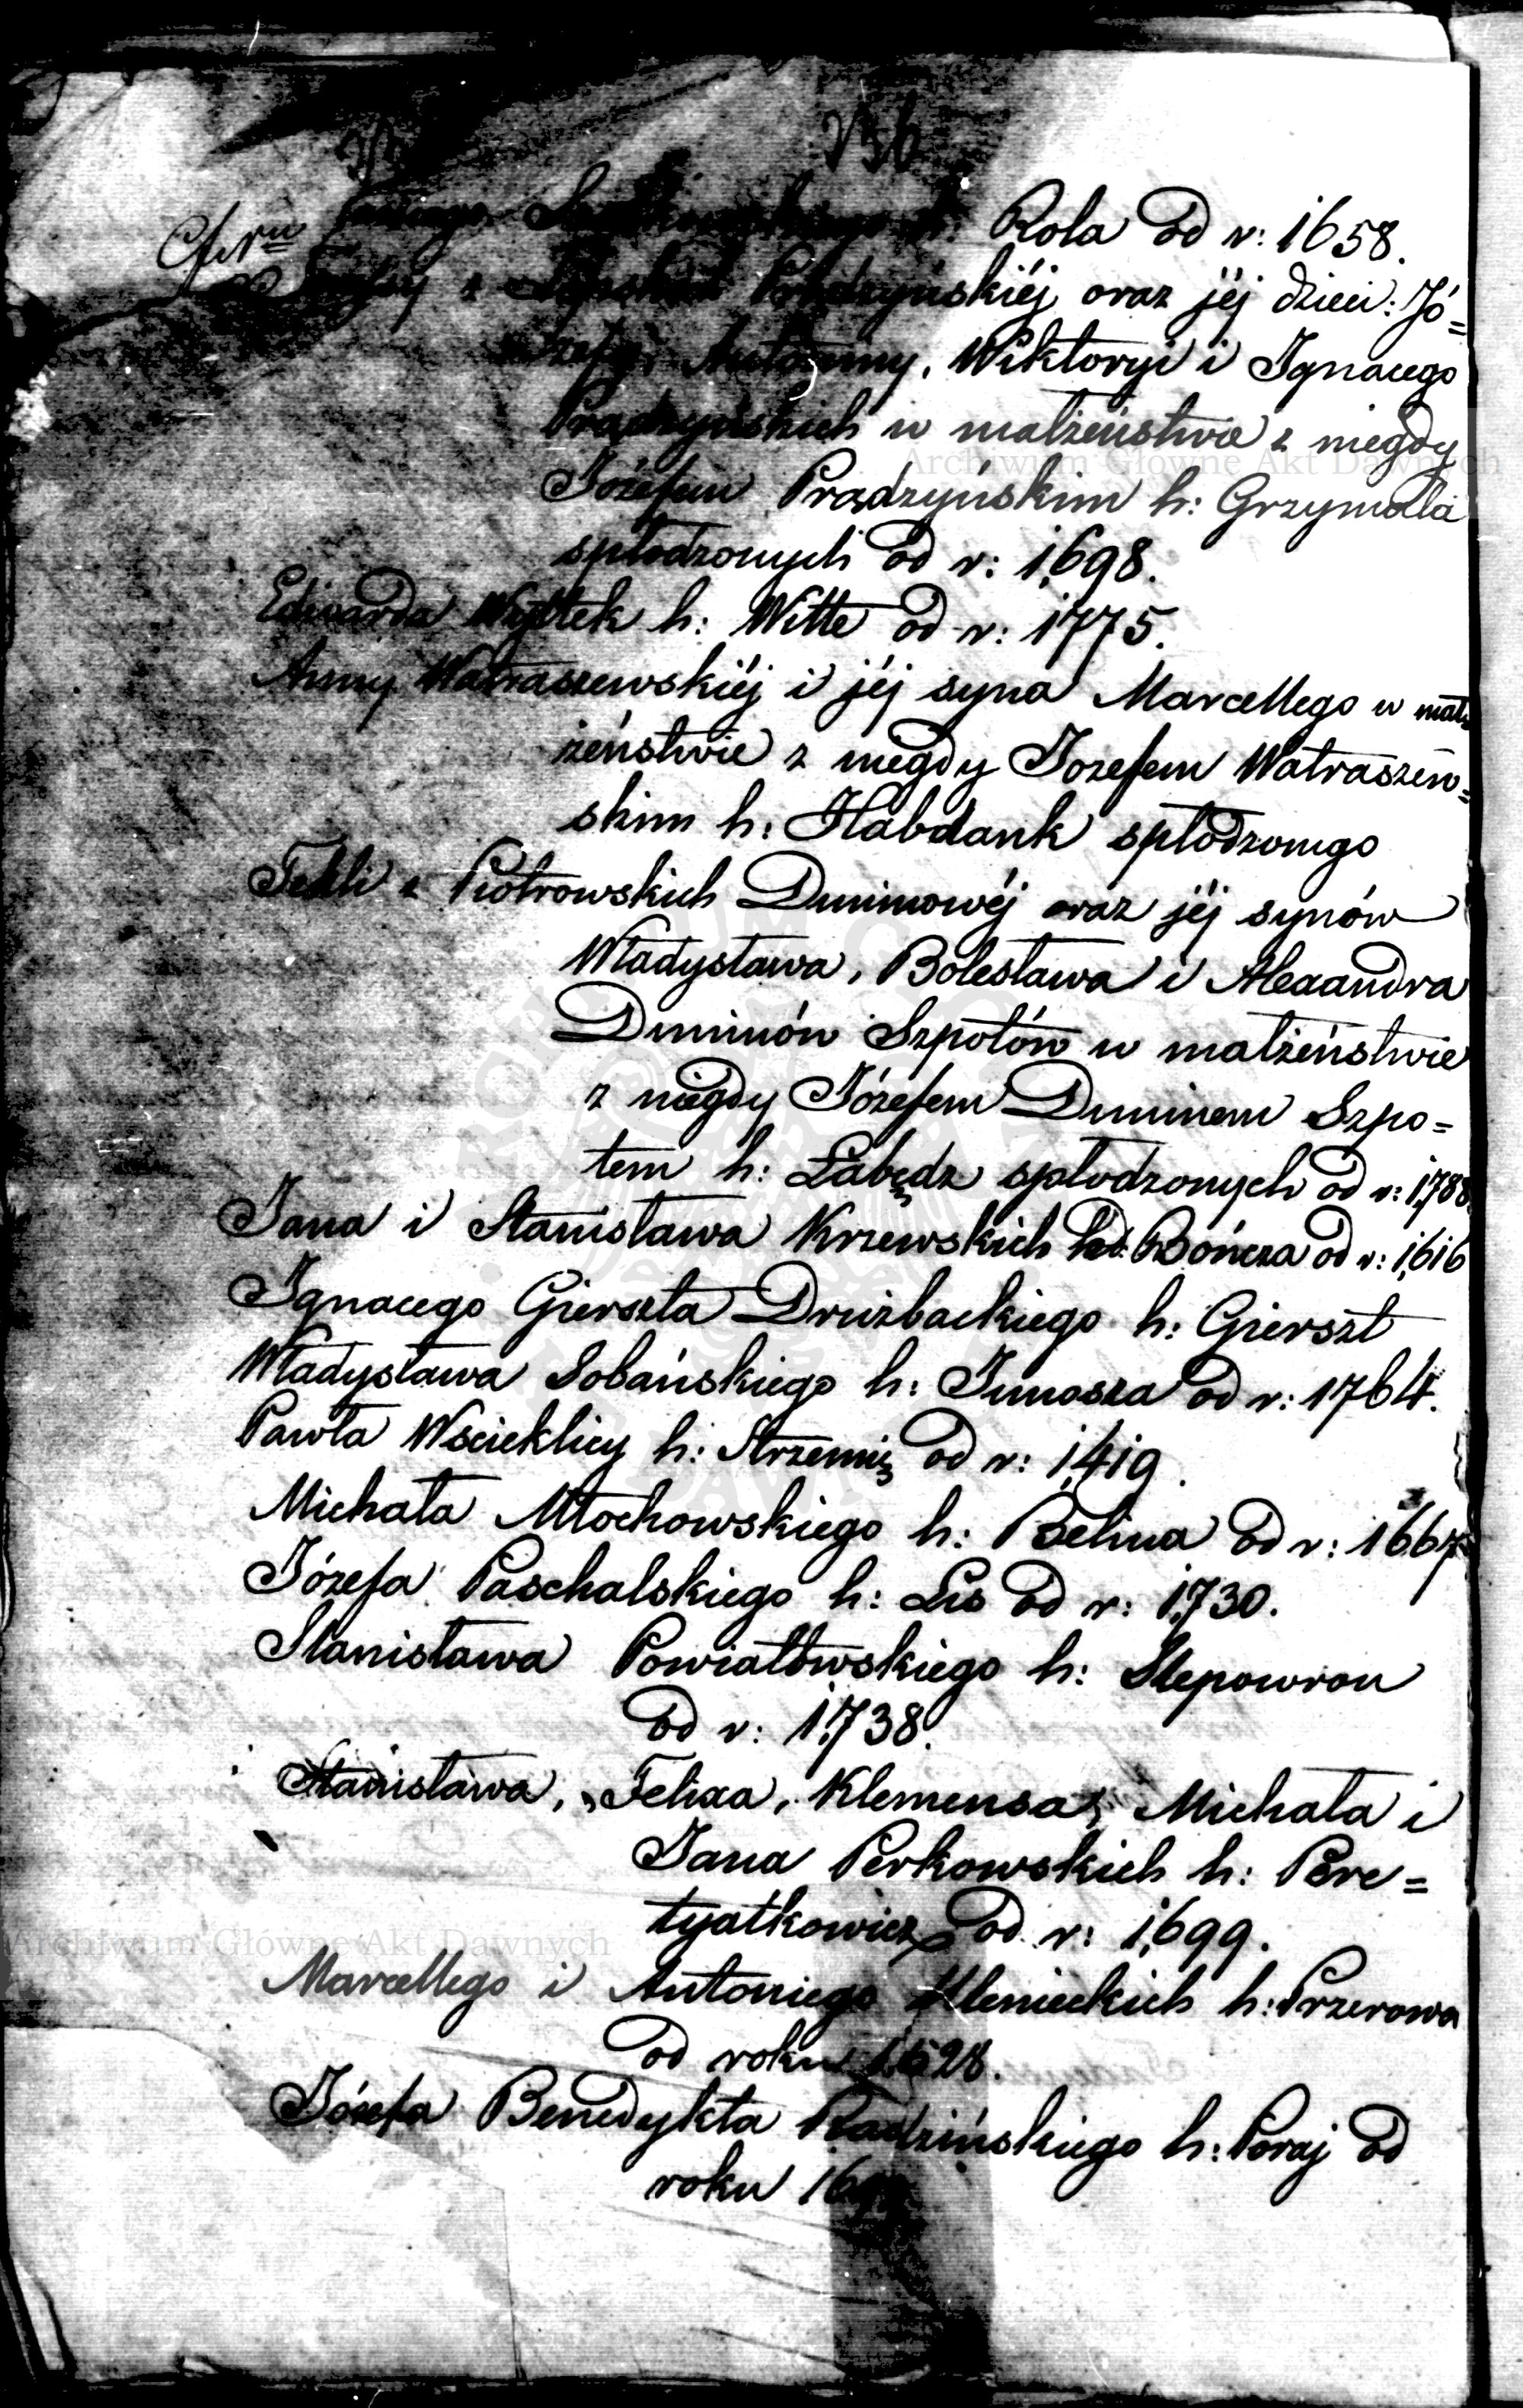 156
Rola od r: 1658.
skiéj oraz jéj dzieci: Jó=
Antoniny, Wiktoryi i Ignacego
Prądzyńskich w małżeństwie z niegdy
Józefem Prądzyńskim h: Grzymała
spłodzonych od r: 1698.
Edwarda Wyttek h: Witte od r: 1775.
Anny Watraszewskiéj i jéj syna Marcellego w mał=
żeństwie z niegdy Jozefem Watraszew=
skim h: Habdank spłodzonego
Tekli z Piotrowskich Duninowéj oraz jéj synów
Władysława, Bolesława i Alexandra
Duninów Szpotów w małżeństwie
z niegdy Józefem Duninem Szpo=
tem h: Łabędz spłodzonych od r: 1788
Jana i Stanisława Krzewskich Bończa od r: 1616
Ignacego Gierszta Drużbackiego h: Gierszt
Władysława Sobańskiego h: Junosza od r: 1764.
Pawła Wscieklicy h: Strzemię od r: 1419.
Michała Młochowskiego h: Belina od r: 1667
Józefa Paschalskiego h: Lis od r: 1730.
Stanisława Powiatowskiego h: Slepowron
od r: 1738.
Stanisława, Felixa, Klemensa, Michała i
Jana Perkowskich h: Pere=
tyatkowicz od r: 1699.
Marcellego i Antoniego Klenieckich h: Przerowa
od roku 1628.
Józefa Benedykta Radzińskiego h: Poraj od
roku
Archiwum Główne Akt Dawnych
Archiwum Główne Akt Dawnych